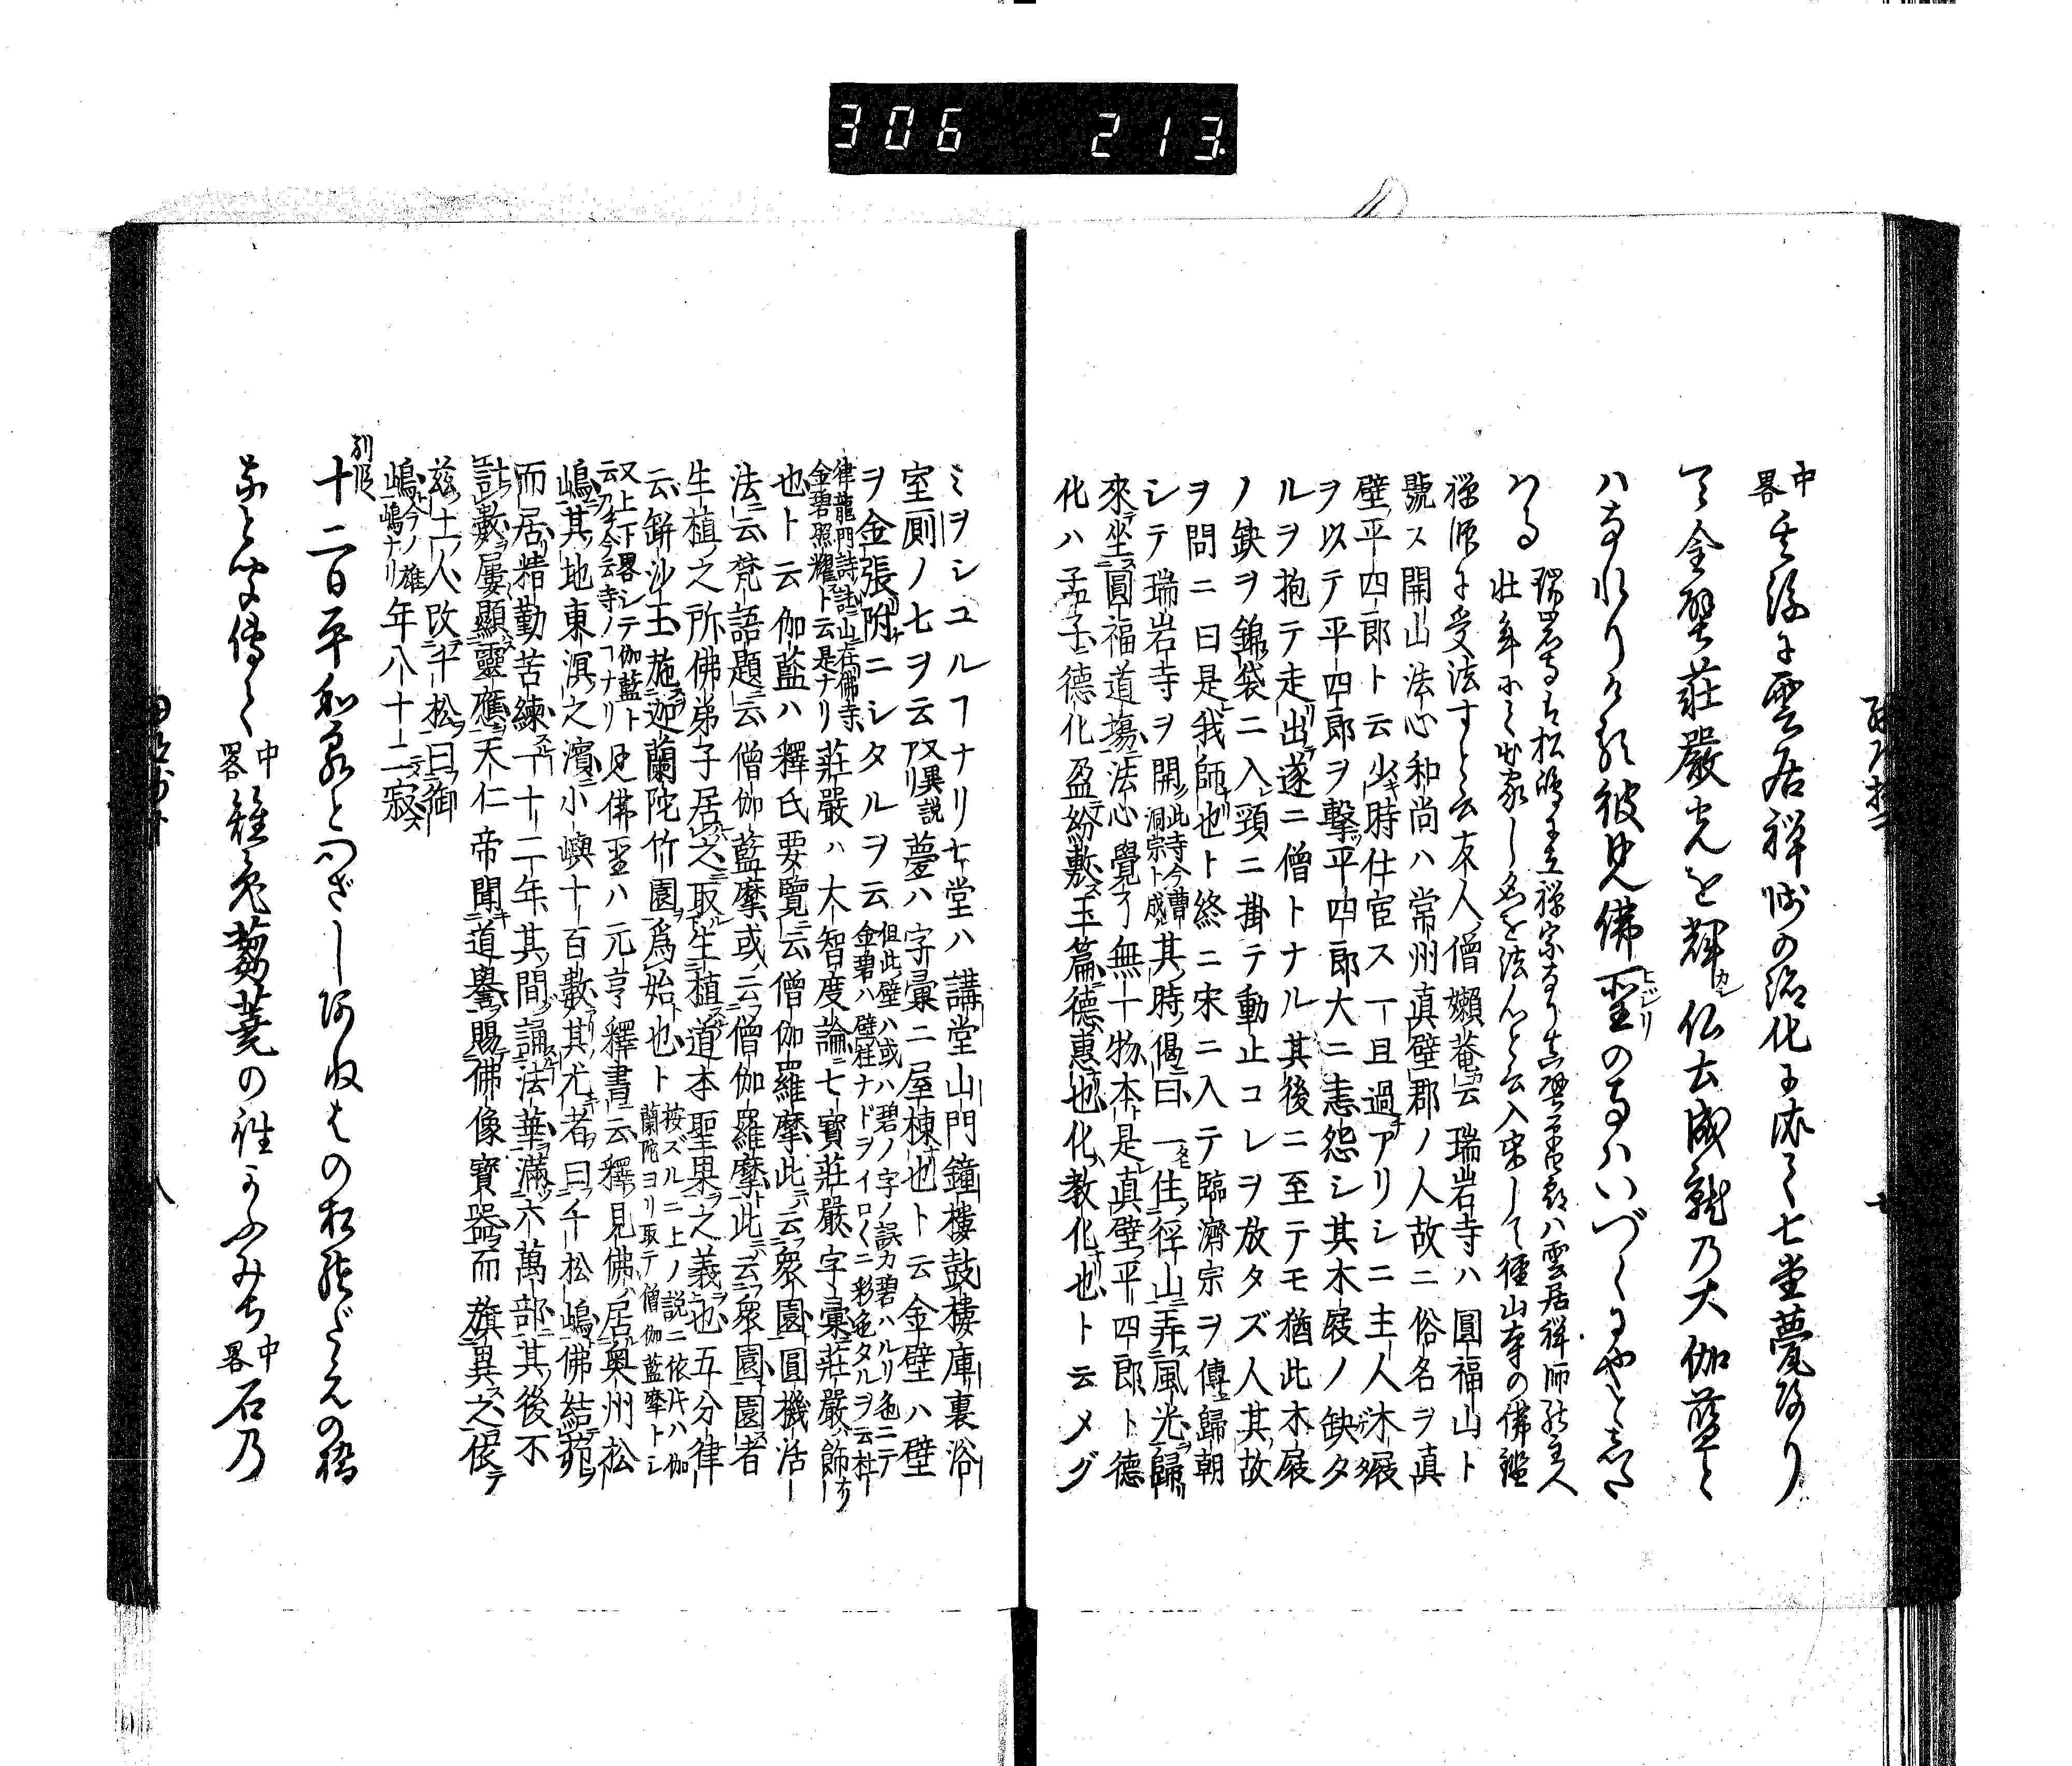 306 213
中畧 其後に雲居禅師の徳化に依て七堂甍改り
て金壁荘嚴光を輝カシ仏土成就乃大伽藍と
ハなれりける彼見佛聖ヒジリの寺ハいづくにやとしたハ
る 瑞岩寺は松嶋に立禅宗なり真壁平四郎ハ雲居禅師能主人
壮年にて出家し名を法心と云入宋して径山寺の佛鑑
禅師に受法すと云友人僧嬾菴云瑞岩寺ハ圓福山ト
號ス開山法心和尚ハ常州真壁郡ノ人故ニ俗名ヲ真
壁平四郎ト云少キ時仕官ス一旦過チアリシニ主人木屐
ヲ以テ平四郎ヲ撃ツ平四郎大ニ恚怨シ其木屐ノ缺タ
ルヲ抱テ走リ出テ遂ニ僧トナル其後ニ至テモ猶此木屐
ノ缺ヲ錦袋ニ入レ頸ニ掛テ動止コレヲ放タズ人其故
ヲ問ニ曰是我師也ト終ニ宋ニ入テ臨濟宗ヲ傳ヱ歸朝
シテ瑞岩寺ヲ開ク此寺今曹洞宗ト成其時偈曰一住徑山弄風光歸
來坐圓福道場法心覺了無一物本是真壁平四郎ト德
化ハ孟子德化盈紛敷玉篇德惠也化教化也ト云メグ
ミヲシユルヿナリ七堂ハ講堂山門鐘樓鼓樓庫裏浴
室厠ノ七ヲ云又異説アリ甍ハ字彙ニ屋棟也ト云金壁ハ壁
ヲ金張附ケニシタルヲ云但此壁ハ或ハ碧ノ字ノ誤カ碧ハルリ色ニテ金碧ハ壁柱ナドヲイロ〳〵ニ彩色タルヲ云杜
律龍門詩註山在佛寺金碧照耀ト云是ナリ荘嚴ハ大智度論ニ七寳荘嚴字彙荘嚴飾ナリ
也ト云伽藍ハ釋氏要覽云僧伽羅摩此云衆園圓機活
法云梵語題云僧伽藍摩或云僧伽羅摩此云衆園園者
生植之所佛弟子居之取生植道本聖果之義也五分律
云缾沙王施迦蘭陀竹園爲始也ト按ズルニ上ノ説ニ依片ハ伽蘭陀ヨリ取テ僧伽藍摩トシ
又上下畧シテ伽藍ト云乃チ今云寺ノヿナリ見佛聖ハ元亨釋書云釋見佛ハ居奥州松
嶋其地東溟之濱小嶼千百數其尤者曰千松嶋佛結菀
而居精勤苦練一十二年其間誦法華滿六萬部其後不
計數屢顯靈應天仁帝聞道譽賜佛像寳器而旗異之依テ
兹土人改千松曰御
嶋今ノ雄嶋ナリ年八十二寂
別段 十二日平和泉と心ざしあねはの松緒だえの橋
など聞傳て中畧雉兔蒭蕘の往かふみち中畧石乃